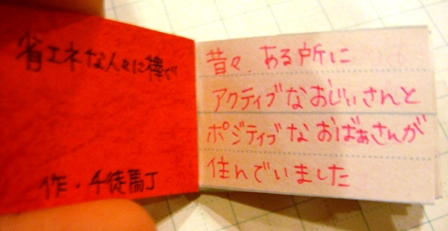 省エネな人々に捧ぐ
作・千徒馬丁
昔々、ある所に
アクティブなおじいさんと
ポジティブなおばあさんが
住んでいました